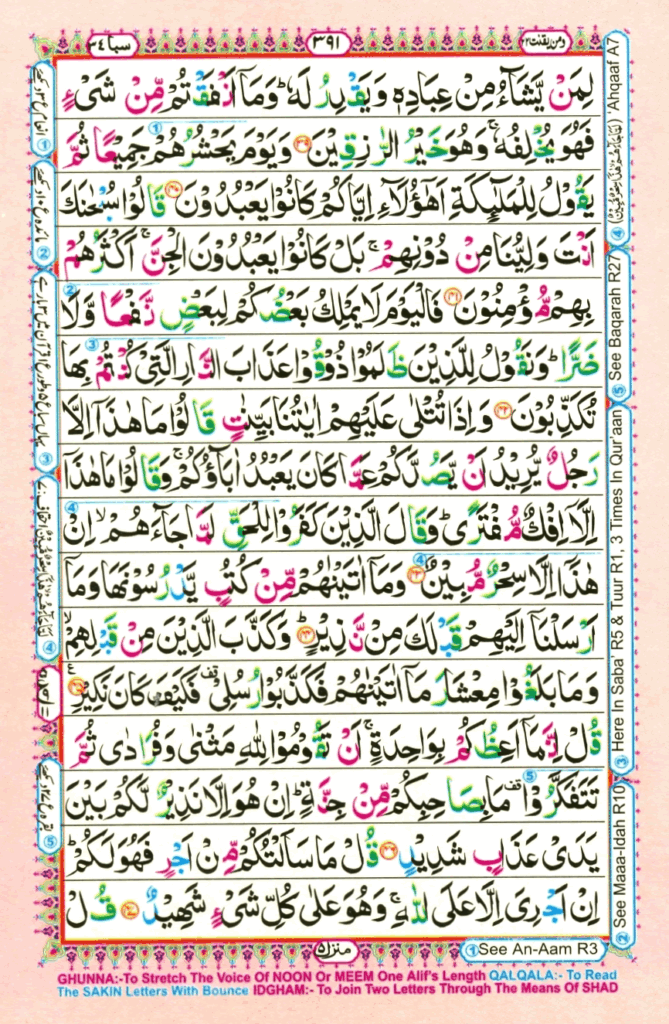 سبا ٣٤
٣٩١
ومن يقنت ٢٢
لِمَنْ يَّشَآءُ مِنْ عِبَادِهٖ وَيَقْدِرُ لَهٗ ؕ وَمَاۤ اَنْفَقْتُمْ مِّنْ شَیْءٍ
فَهُوَ يُخْلِفُهٗ ۚ وَهُوَ خَيْرُ الرّٰزِقِيْنَ ﴿٣٩﴾ وَيَوْمَ يَحْشُرُهُمْ جَمِيْعًا ثُمَّ
يَقُوْلُ لِلْمَلٰٓئِكَةِ اَهٰۤؤُلَآءِ اِيَّاكُمْ كَانُوْا يَعْبُدُوْنَ ﴿٤٠﴾ قَالُوْا سُبْحٰنَكَ
اَنْتَ وَلِيُّنَا مِنْ دُوْنِهِمْ ۚ بَلْ كَانُوْا يَعْبُدُوْنَ الْجِنَّ ۚ اَكْثَرُهُمْ
بِهِمْ مُّؤْمِنُوْنَ ﴿٤١﴾ فَالْيَوْمَ لَا يَمْلِكُ بَعْضُكُمْ لِبَعْضٍ نَّفْعًا وَّلَا
ضَرًّا ؕ وَنَقُوْلُ لِلَّذِيْنَ ظَلَمُوْا ذُوْقُوْا عَذَابَ النَّارِ الَّتِیْ كُنْتُمْ بِهَا
تُكَذِّبُوْنَ ﴿٤٢﴾ وَاِذَا تُتْلٰى عَلَيْهِمْ اٰيٰتُنَا بَيِّنٰتٍ قَالُوْا مَا هٰذَاۤ اِلَّا
رَجُلٌ يُّرِيْدُ اَنْ يَّصُدَّكُمْ عَمَّا كَانَ يَعْبُدُ اٰبَآؤُكُمْ ۚ وَقَالُوْا مَا هٰذَاۤ
اِلَّاۤ اِفْكٌ مُّفْتَرًى ؕ وَقَالَ الَّذِيْنَ كَفَرُوْا لِلْحَقِّ لَمَّا جَآءَهُمْ ۙ اِنْ
هٰذَاۤ اِلَّا سِحْرٌ مُّبِيْنٌ ﴿٤٣﴾ وَمَاۤ اٰتَيْنٰهُمْ مِّنْ كُتُبٍ يَّدْرُسُوْنَهَا وَمَاۤ
اَرْسَلْنَاۤ اِلَيْهِمْ قَبْلَكَ مِنْ نَّذِيْرٍ ﴿٤٤﴾ وَكَذَّبَ الَّذِيْنَ مِنْ قَبْلِهِمْ ۙ
وَمَا بَلَغُوْا مِعْشَارَ مَاۤ اٰتَيْنٰهُمْ فَكَذَّبُوْا رُسُلِیْ ۫ فَكَيْفَ كَانَ نَكِيْرِ ﴿٤٥﴾
قُلْ اِنَّمَاۤ اَعِظُكُمْ بِوَاحِدَةٍ ۚ اَنْ تَقُوْمُوْا لِلّٰهِ مَثْنٰى وَفُرَادٰى ثُمَّ
تَتَفَكَّرُوْا ۫ مَا بِصَاحِبِكُمْ مِّنْ جِنَّةٍ ؕ اِنْ هُوَ اِلَّا نَذِيْرٌ لَّكُمْ بَيْنَ
يَدَیْ عَذَابٍ شَدِيْدٍ ﴿٤٦﴾ قُلْ مَا سَاَلْتُكُمْ مِّنْ اَجْرٍ فَهُوَ لَكُمْ ؕ
اِنْ اَجْرِیَ اِلَّا عَلَى اللّٰهِ ۚ وَهُوَ عَلٰى كُلِّ شَیْءٍ شَهِيْدٌ ﴿٤٧﴾ قُلْ
منزل ۵
① See An-Aam R3
② See Maaa-Idah R10
③ Here In Saba' R5 & Tuur R1, 3 Times In Qur'aan
⑤ See Baqarah R27
④ 'Ahqaaf A7
GHUNNA:-To Stretch The Voice Of NOON Or MEEM One Alif's Length QALQALA:- To Read
The SAKIN Letters With Bounce IDGHAM:- To Join Two Letters Through The Means Of SHAD